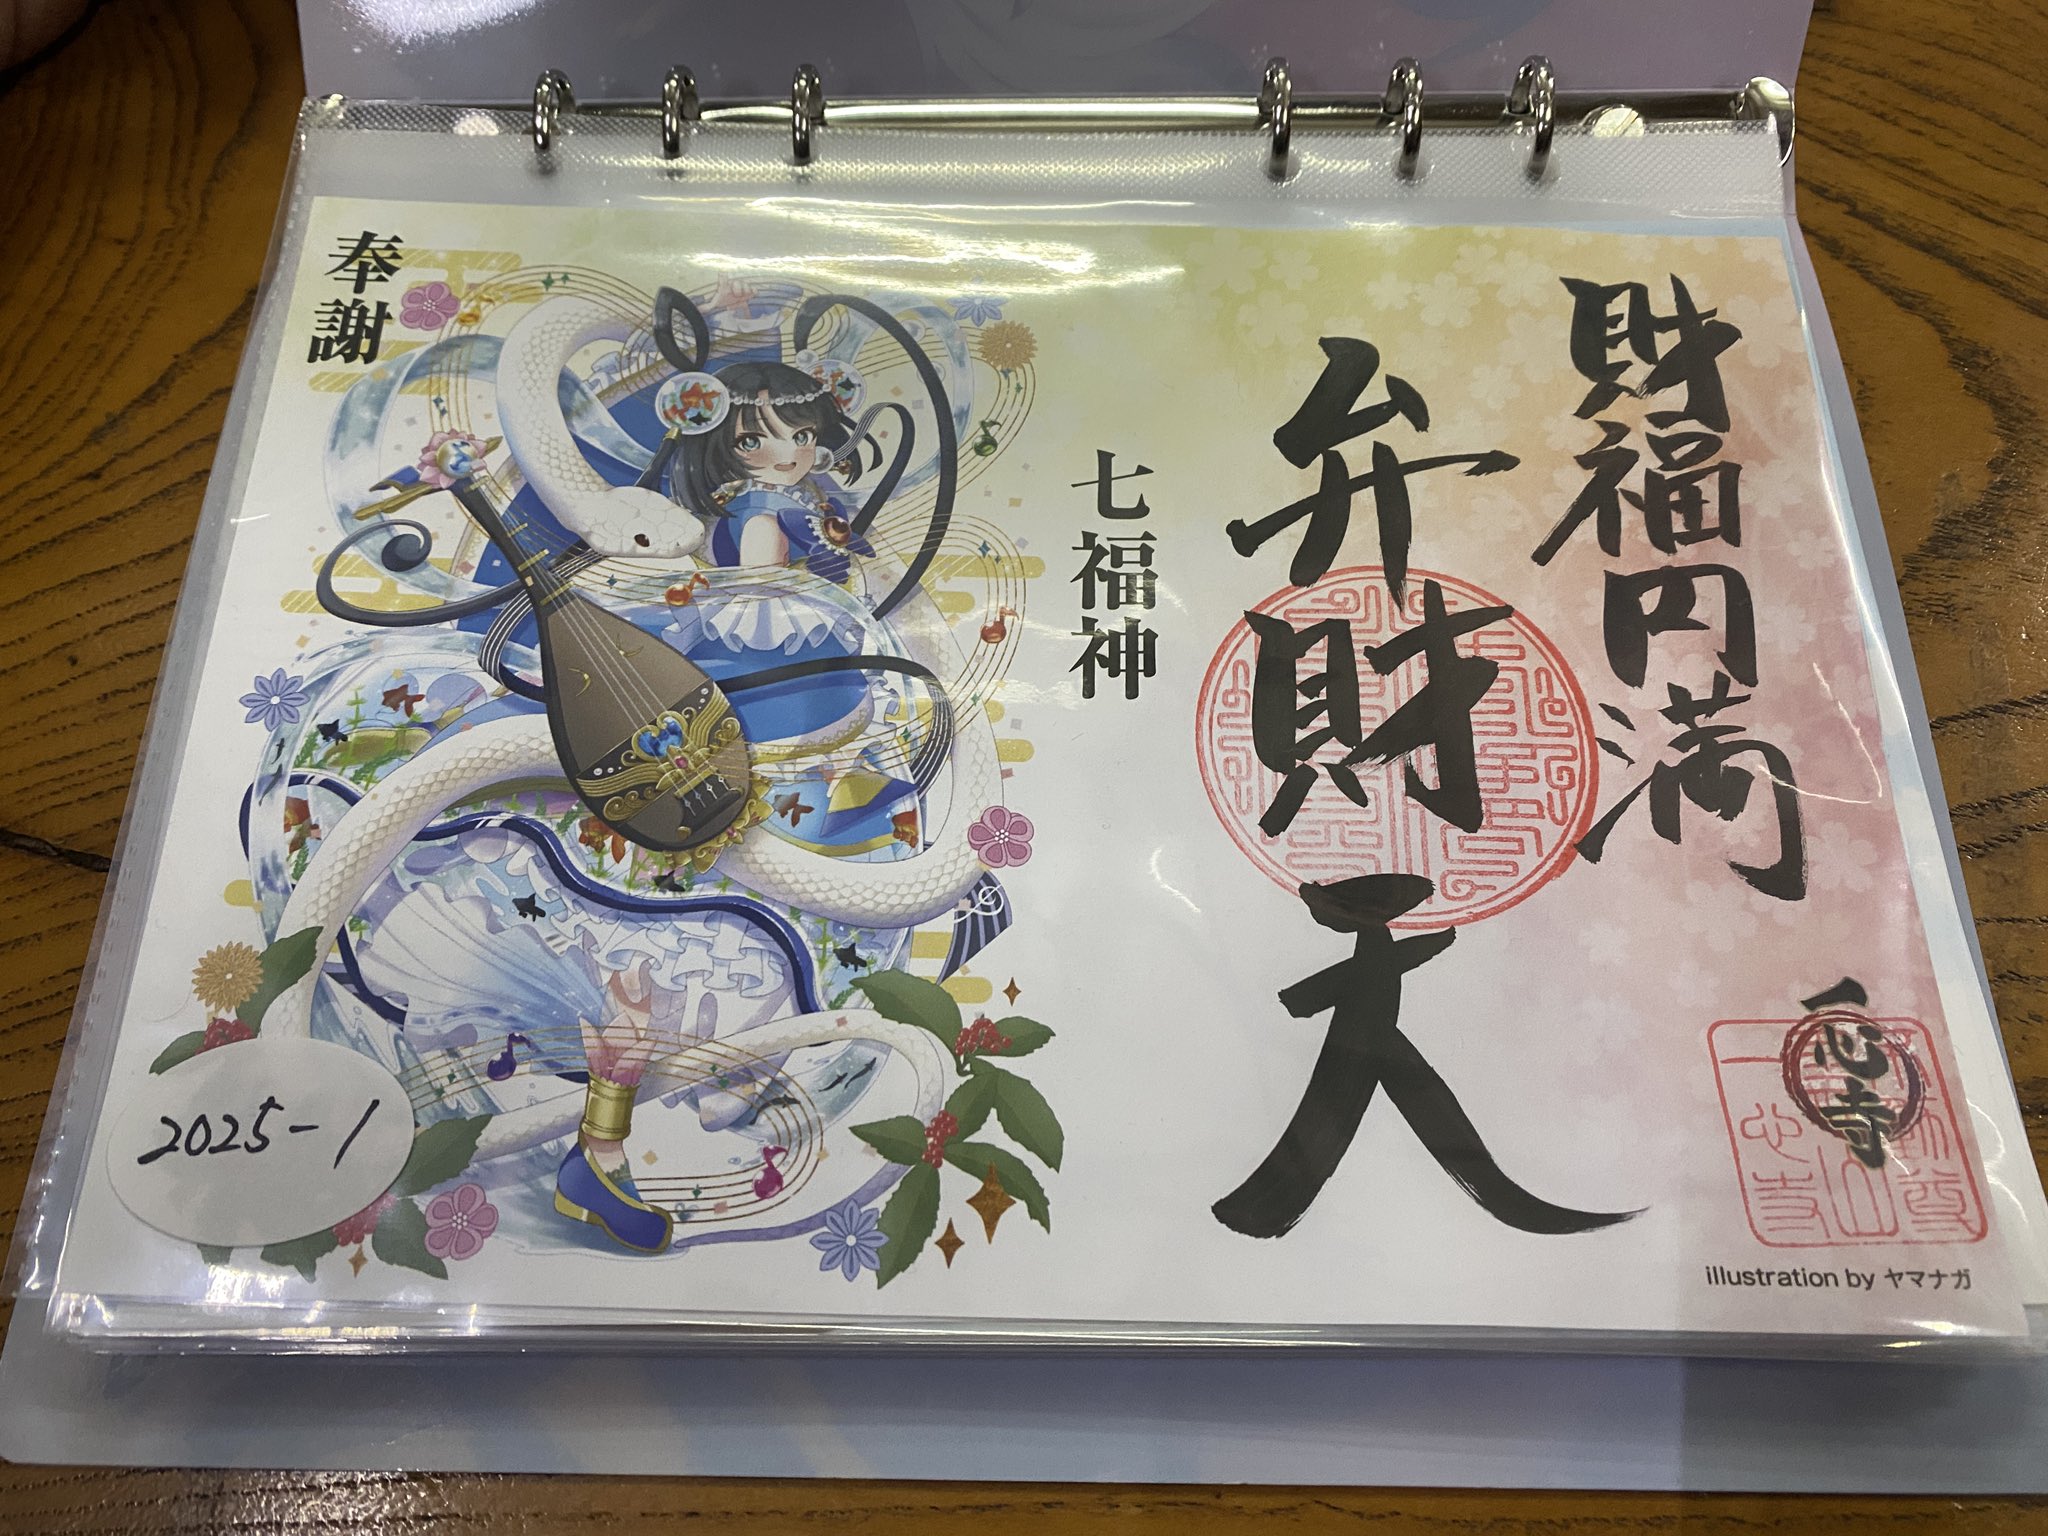 財福円満
弁財天
七福神
奉謝
一心寺
2025-1
illustration by ヤマナガ